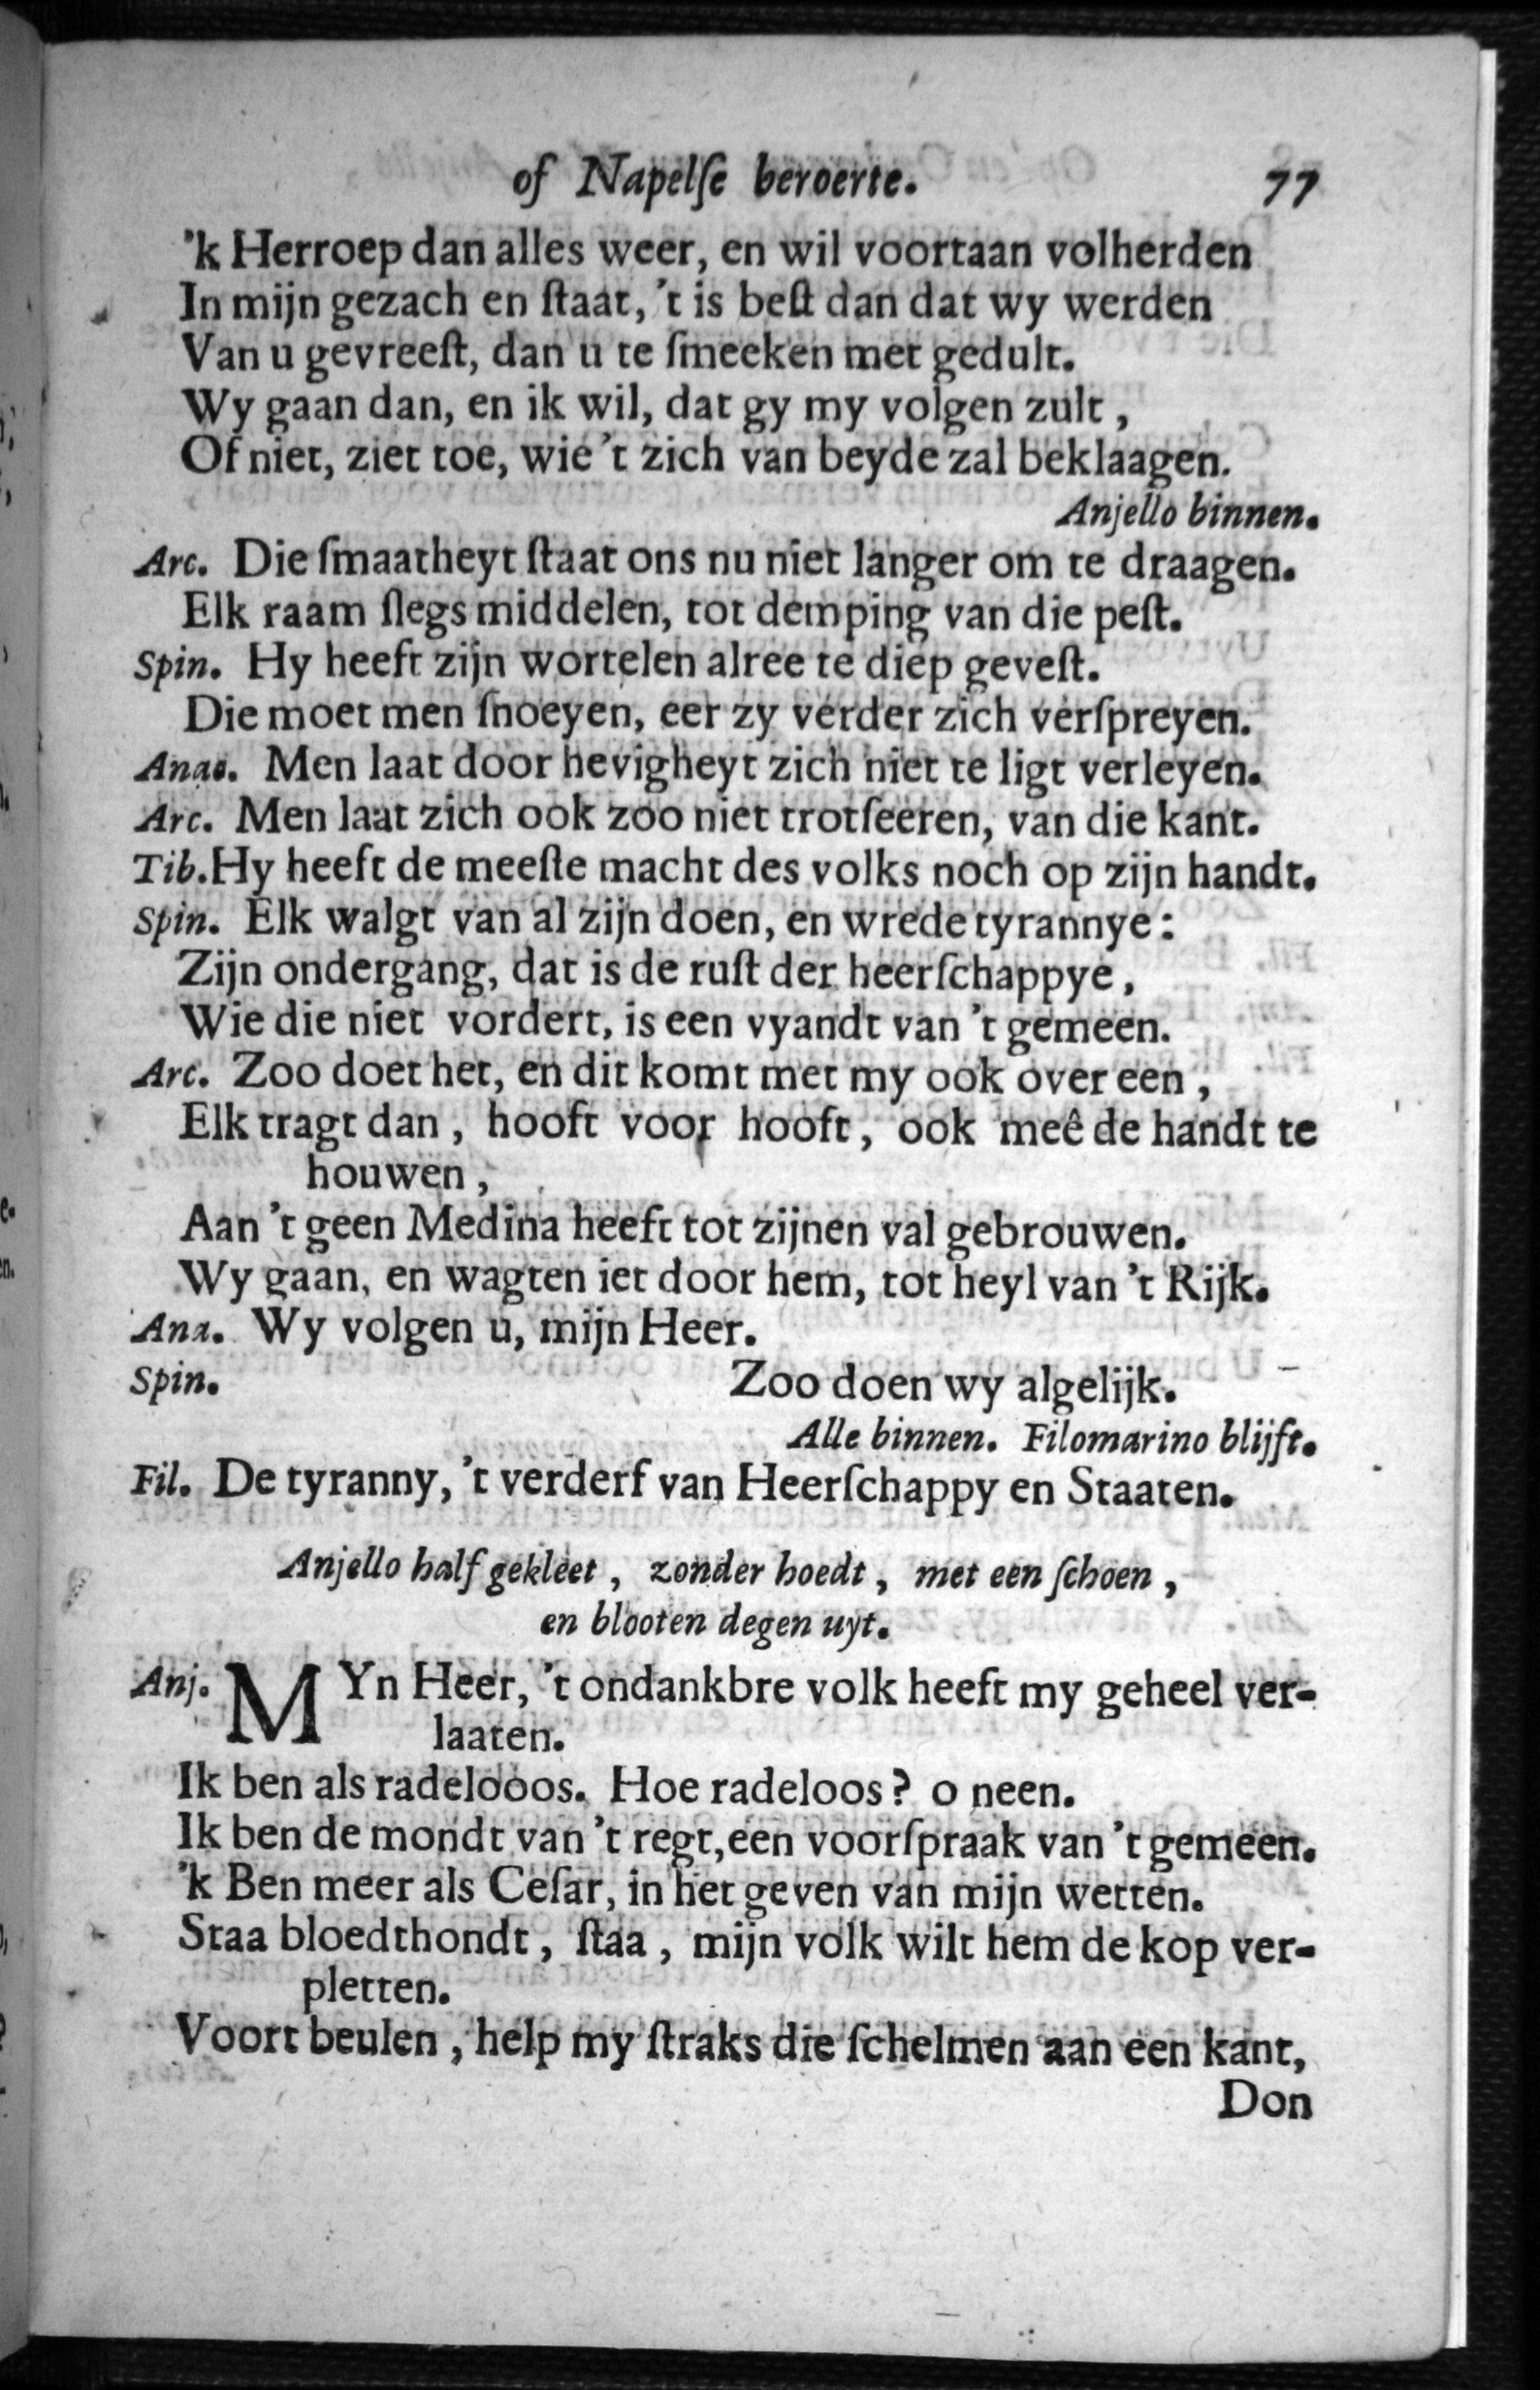 of Napelſe beroerte. 77
'k Herroep dan alles weer, en wil voortaan volherden
In mijn gezach en ſtaat, 't is beſt dan dat wy werden
Van u gevreeſt, dan u te ſmeeken met gedult.
Wy gaan dan, en ik wil, dat gy my volgen zult,
Of niet, ziet toe, wie 't zich van beyde zal beklaagen.
Anjello binnen.
Arc. Die ſmaatheyt ſtaat ons nu niet langer om te draagen.
Elk raam ſlegs middelen, tot demping van die peſt.
Spin. Hy heeft zijn wortelen alree te diep geveſt.
Die moet men ſnoeyen, eer zy verder zich verſpreyen.
Anao. Men laat door hevigheyt zich niet te ligt verleyen.
Arc. Men laat zich ook zoo niet trotſeeren, van die kant.
Tib. Hy heeft de meeſte macht des volks noch op zijn handt.
Spin. Elk walgt van al zijn doen, en wrede tyrannye:
Zijn ondergang, dat is de ruſt der heerſchappye,
Wie die niet vordert, is een vyandt van 't gemeen.
Arc. Zoo doet het, en dit komt met my ook over een,
Elk tragt dan, hooft voor hooft, ook meê de handt te
houwen,
Aan 't geen Medina heeft tot zijnen val gebrouwen.
Wy gaan, en wagten iet door hem, tot heyl van 't Rijk.
Ana. Wy volgen u, mijn Heer.
Spin. Zoo doen wy algelijk.
Alle binnen. Filomarino blijft.
Fil. De tyranny, 't verderf van Heerſchappy en Staaten.
Anjello half gekleet, zonder hoedt, met een ſchoen,
en blooten degen uyt.
Anj. MYn Heer, 't ondankbre volk heeft my geheel ver-
laaten.
Ik ben als radelooos. Hoe radeloos? o neen.
Ik ben de mondt van 't regt, een voorſpraak van 't gemeen.
'k Ben meer als Ceſar, in het geven van mijn wetten.
Staa bloedthondt, ſtaa, mijn volk wilt hem de kop ver-
pletten.
Voort beulen, help my ſtraks die ſchelmen aan een kant,
Don